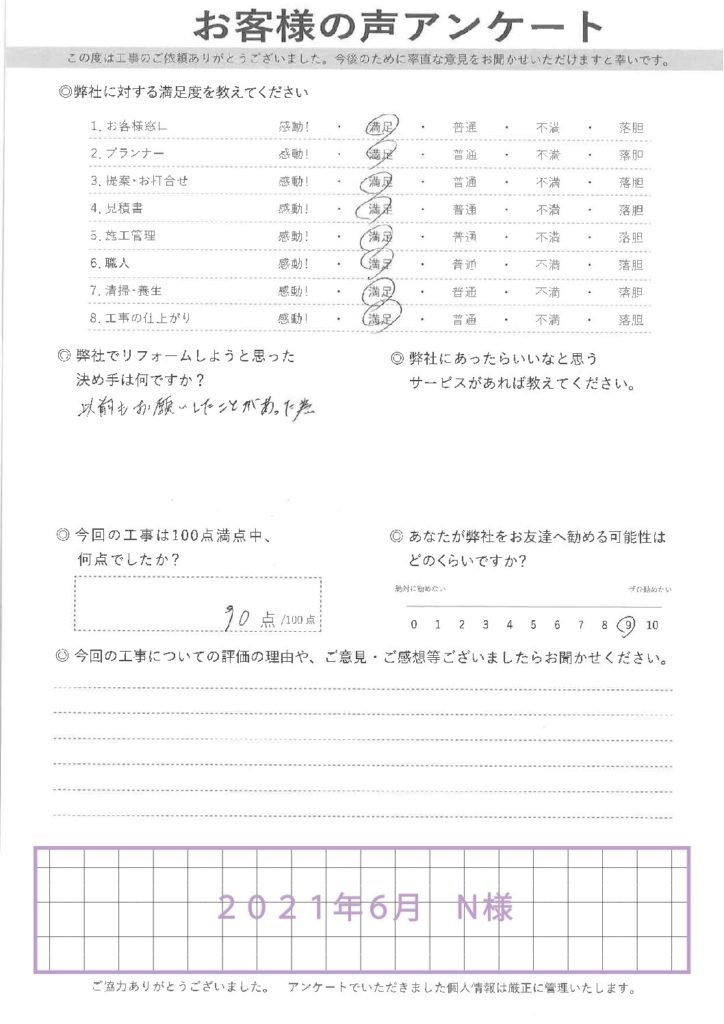 お客様の声アンケート
この度は工事のご依頼ありがとうございました。今後のために率直な意見をお聞かせいただけますと幸いです。
◎弊社に対する満足度を教えてください
1. お客様窓口 感動! ・ 満足 ・ 普通 ・ 不満 ・ 落胆
2. プランナー 感動! ・ 満足 ・ 普通 ・ 不満 ・ 落胆
3. 提案・お打合せ 感動! ・ 満足 ・ 普通 ・ 不満 ・ 落胆
4. 見積書 感動! ・ 満足 ・ 普通 ・ 不満 ・ 落胆
5. 施工管理 感動! ・ 満足 ・ 普通 ・ 不満 ・ 落胆
6. 職人 感動! ・ 満足 ・ 普通 ・ 不満 ・ 落胆
7. 清掃・養生 感動! ・ 満足 ・ 普通 ・ 不満 ・ 落胆
8. 工事の仕上がり 感動! ・ 満足 ・ 普通 ・ 不満 ・ 落胆
◎弊社でリフォームしようと思った
決め手は何ですか?
以前もお願いしたことがあった為
◎弊社にあったらいいなと思う
サービスがあれば教えてください。
◎今回の工事は100点満点中、
何点でしたか?
90 点 /100点
◎あなたが弊社をお友達へ勧める可能性は
どのくらいですか?
絶対に勧めたくない ぜひ勧めたい
0 1 2 3 4 5 6 7 8 9 10
◎今回の工事についての評価の理由や、ご意見・ご感想等ございましたらお聞かせください。
2021年6月 N様
ご協力ありがとうございました。 アンケートでいただきました個人情報は厳正に管理いたします。